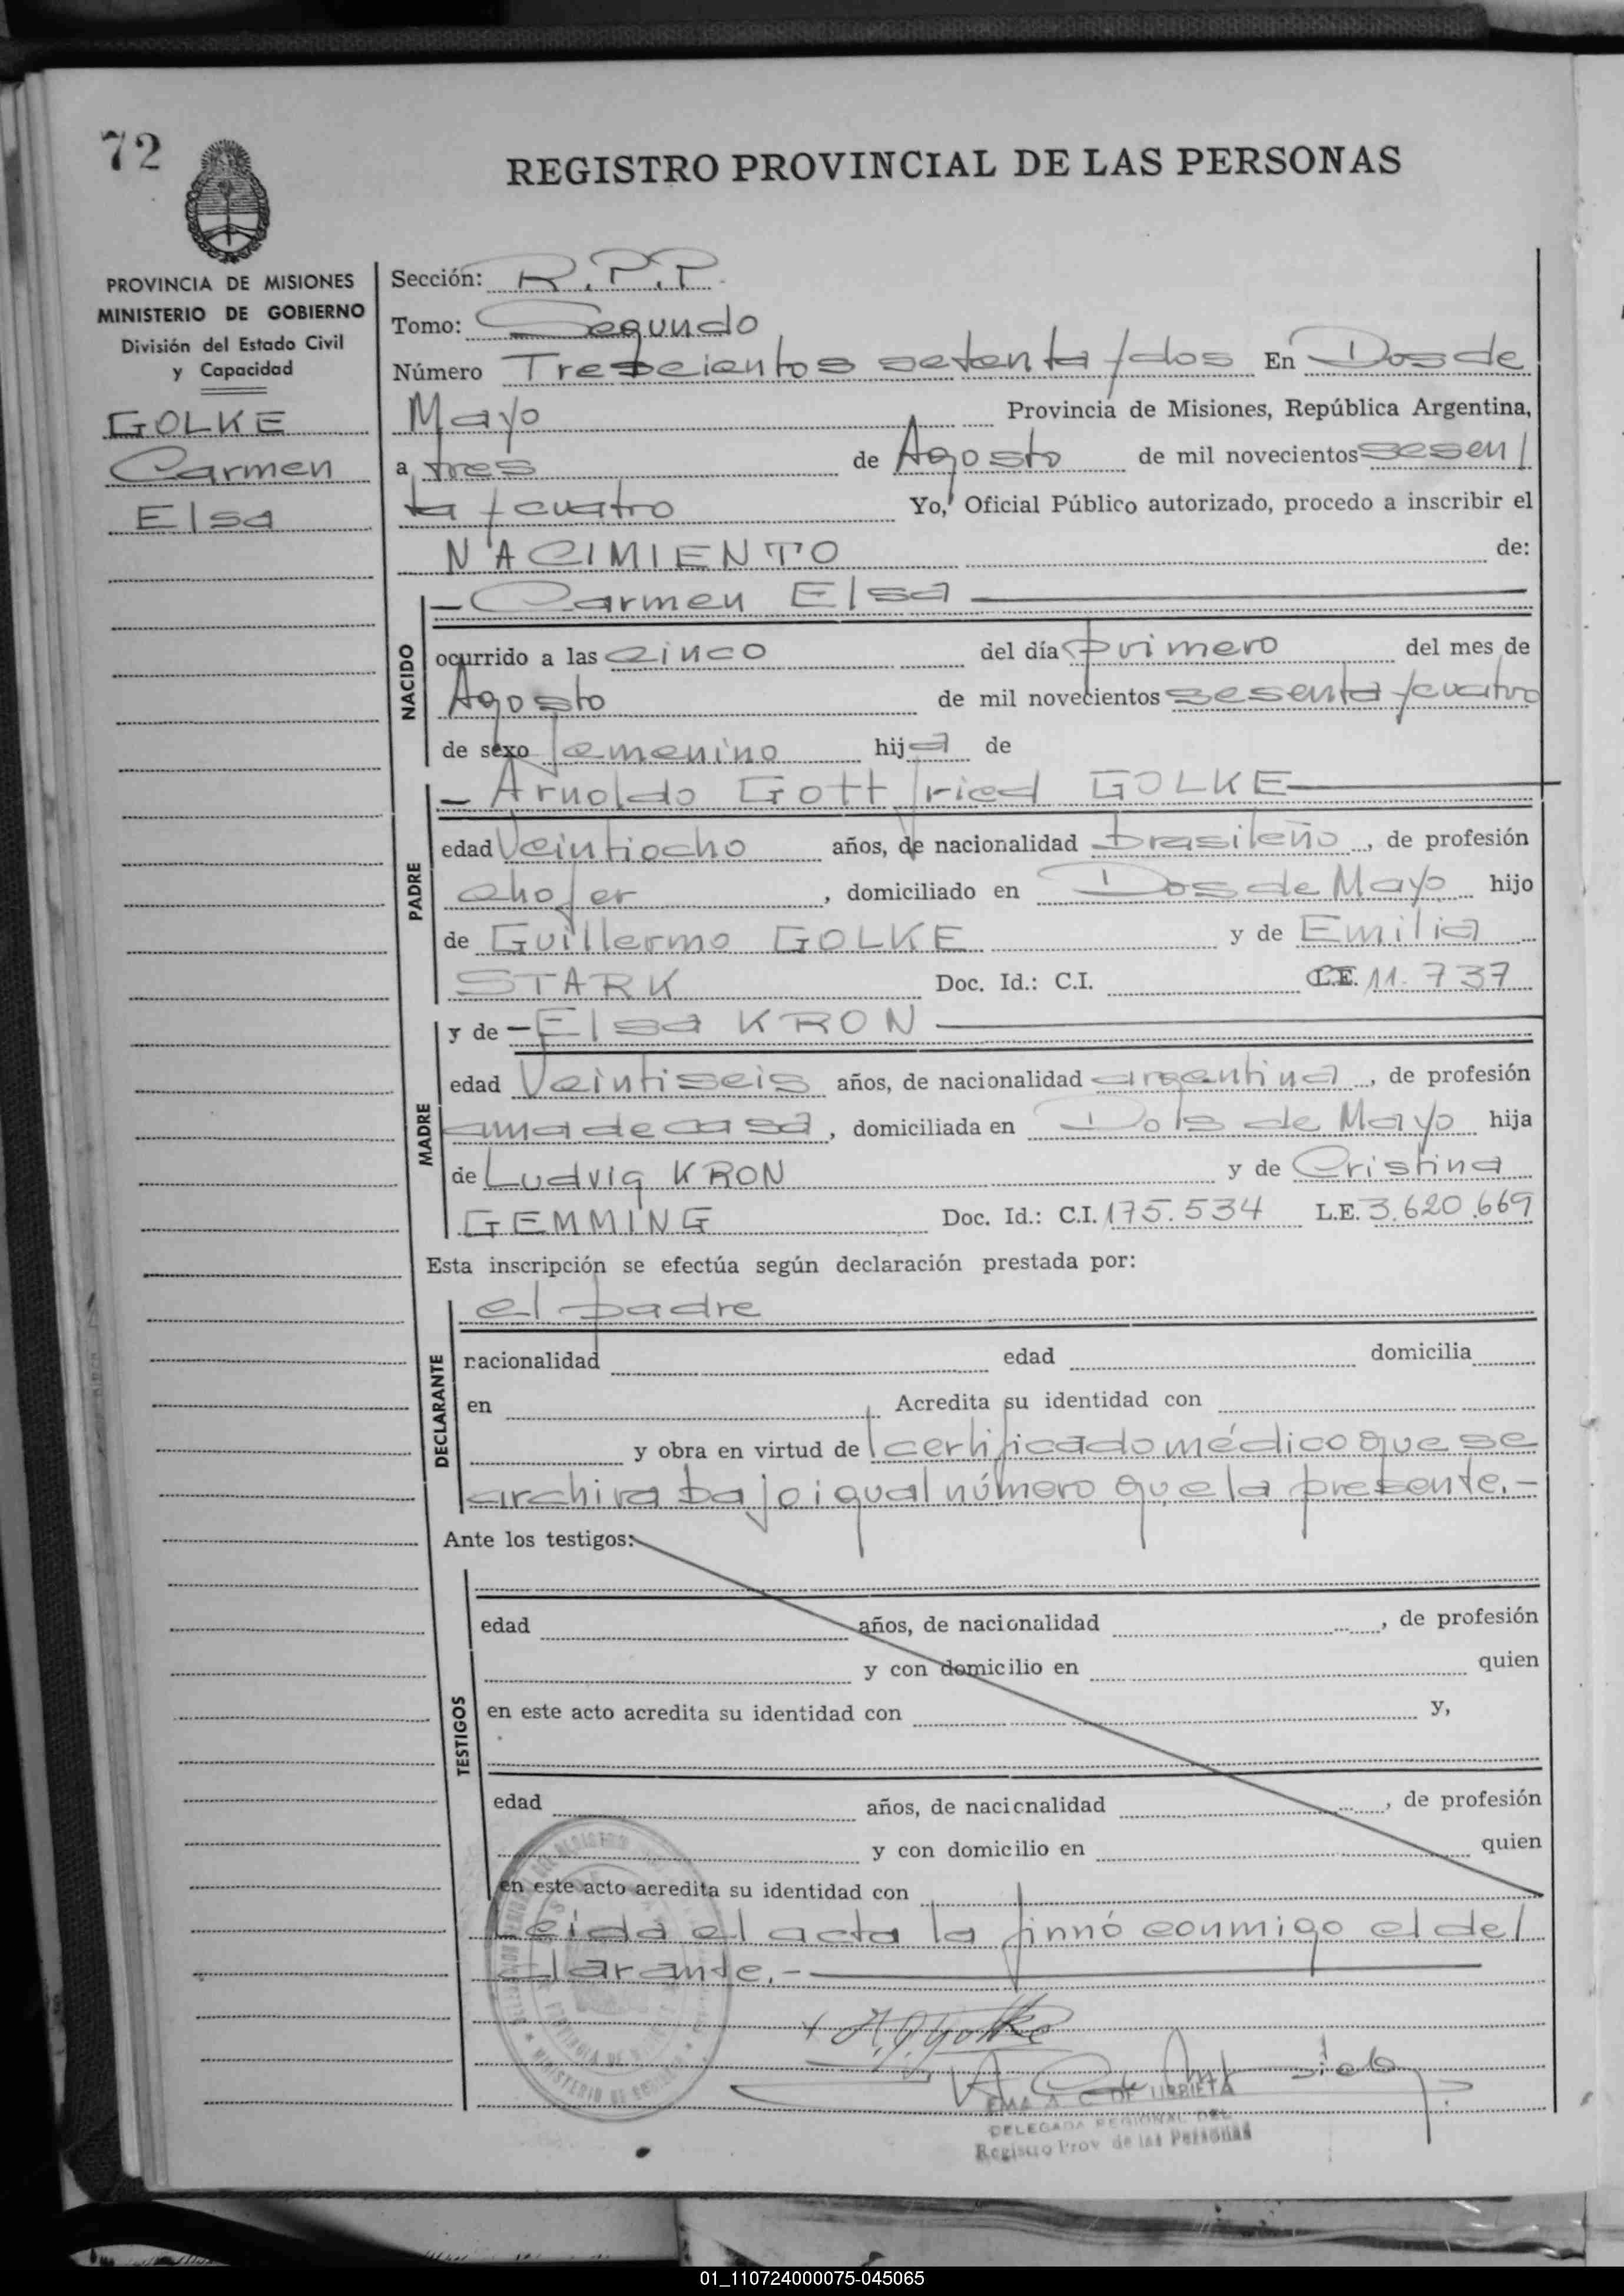 72
REGISTRO PROVINCIAL DE LAS PERSONAS
PROVINCIA DE MISIONES
MINISTERIO DE GOBIERNO
División del Estado Civil
y Capacidad
GOLKE
Carmen
Elsa
Sección: R.P.P.
Tomo: Segundo
Número Trescientos setenta y dos En Dos de
Mayo Provincia de Misiones, República Argentina,
a tres de Agosto de mil novecientos sesen
ta y cuatro Yo, Oficial Público autorizado, procedo a inscribir el
NACIMIENTO de:
NACIDO
— Carmen Elsa —
ocurrido a las cinco del día primero del mes de
Agosto de mil novecientos sesenta y cuatro
de sexo femenino hija de
PADRE
— Arnoldo Gottfried GOLKE —
edad Veintiocho años, de nacionalidad brasileño, de profesión
chofer, domiciliado en Dos de Mayo hijo
de Guillermo GOLKE y de Emilia
STARK Doc. Id.: C.I. L.E. 11.737
MADRE
y de — Elsa KRON —
edad Veintiseis años, de nacionalidad argentina, de profesión
ama de casa, domiciliada en Dos de Mayo hija
de Ludvig KRON y de Cristina
GEMMING Doc. Id.: C.I. 175.534 L.E. 3.620.669
Esta inscripción se efectúa según declaración prestada por:
DECLARANTE
el padre
nacionalidad edad domicilia
en Acredita su identidad con
y obra en virtud de certificado médico que se
archiva bajo igual número que la presente.-
Ante los testigos:
TESTIGOS
edad años, de nacionalidad , de profesión
y con domicilio en quien
en este acto acredita su identidad con y,
edad años, de nacionalidad , de profesión
y con domicilio en quien
en este acto acredita su identidad con
Leída el acta la firmó conmigo el de
clarante.-
A.G. Golke
EMA A. C. DE URBIETA
DELEGADA REGIONAL DEL
Registro Prov. de las Personas
01_110724000075-045065